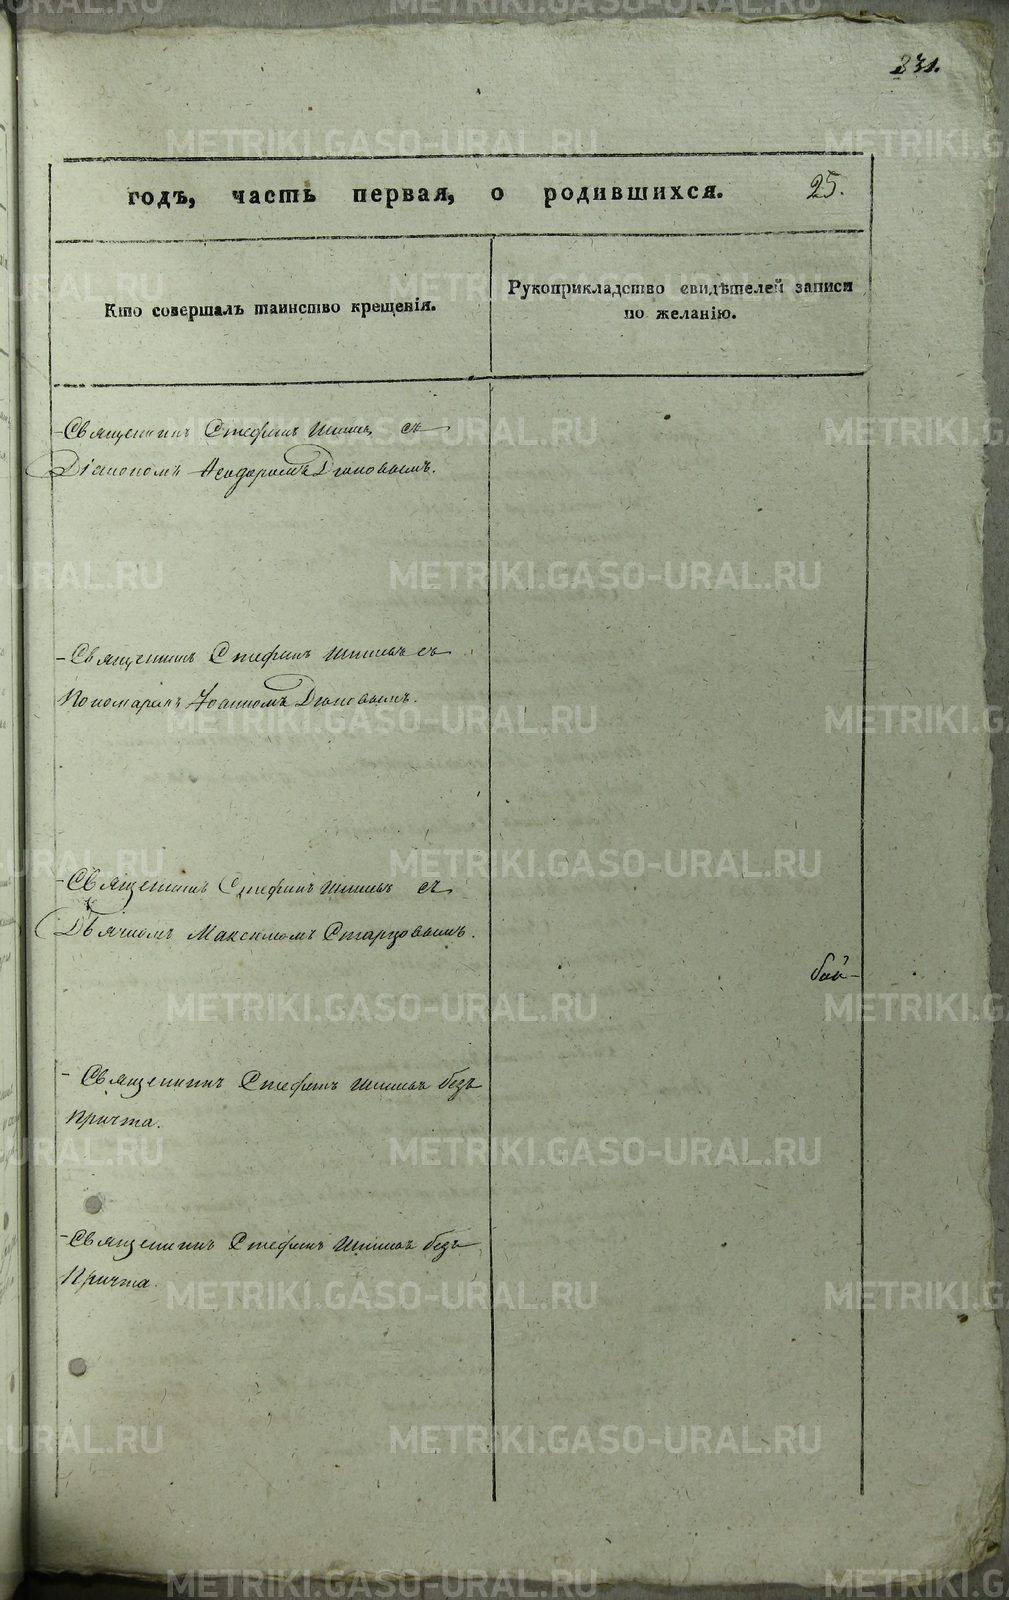 331.
годъ, часть первая, о родившихся. 25.
Кто совершалъ таинство крещенія.
Рукоприкладство свидѣтелей записи
по желанію.
Священникъ Стефанъ съ
Діакономъ Ѳеодоромъ
Священникъ Стефанъ съ
Пономаремъ Іоанномъ
Священникъ Стефанъ съ
Дьячкомъ Максимомъ Старцовымъ.
Священникъ Стефанъ безъ
причта.
Священникъ Стефанъ безъ
Причта.
METRIKI.GASO-URAL.RU